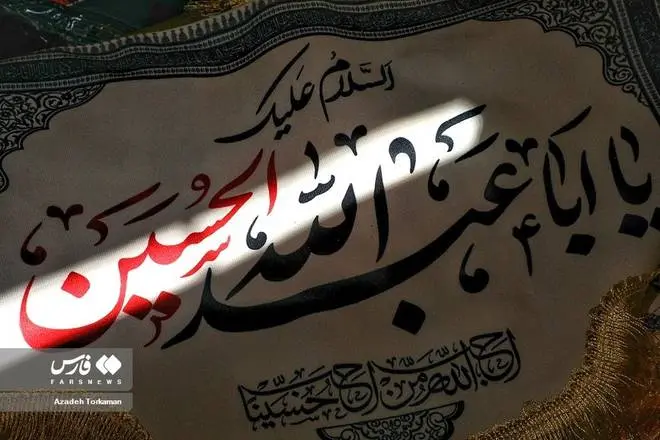 السلام علیک
یا اباعبدالله الحسین
احب الله من احب حسینا
فارس
FARSNEWS
Azadeh Torkaman